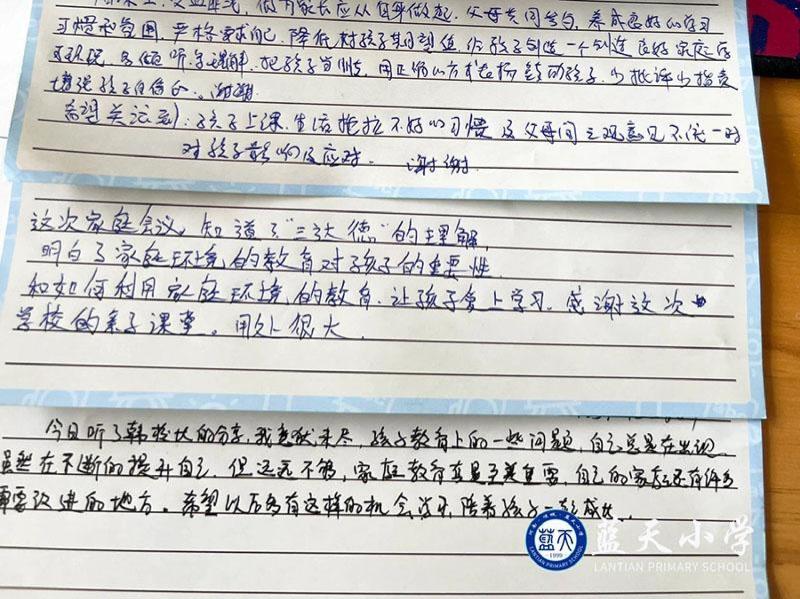 做为家长应从自身做起,父母共同学习,养成良好的学习
习惯和氛围,严格要求自己,降低对孩子期望值,给孩子创造一个
多倾听多理解,把孩子当朋友,用正确的方式表扬鼓励孩子,少批评少指责
增强孩子自信心。谢谢
希望关注到:孩子上课、生活拖拉不好的习惯及父母间主观意见不统一时
对孩子影响及应对。 谢谢
这次家庭会议,知道了“三达德”的理解,
明白了家庭环境的教育对孩子的重要性
和如何利用家庭环境的教育,让孩子爱上学习。感谢这次
学校的亲子课堂。用处很大
今日听了韩校长的分享,我意犹未尽,孩子教育上的一些问题,自己总是在出现
虽然在不断的提升自己,但远远不够,家庭教育真是至关重要,自己的家庭还有许多
需要改进的地方。希望以后多有这样的机会学习,陪着孩子一起成长。
蓝天
1999
LANTIAN PRIMARY SCHOOL
蓝天小学
LANTIAN PRIMARY SCHOOL